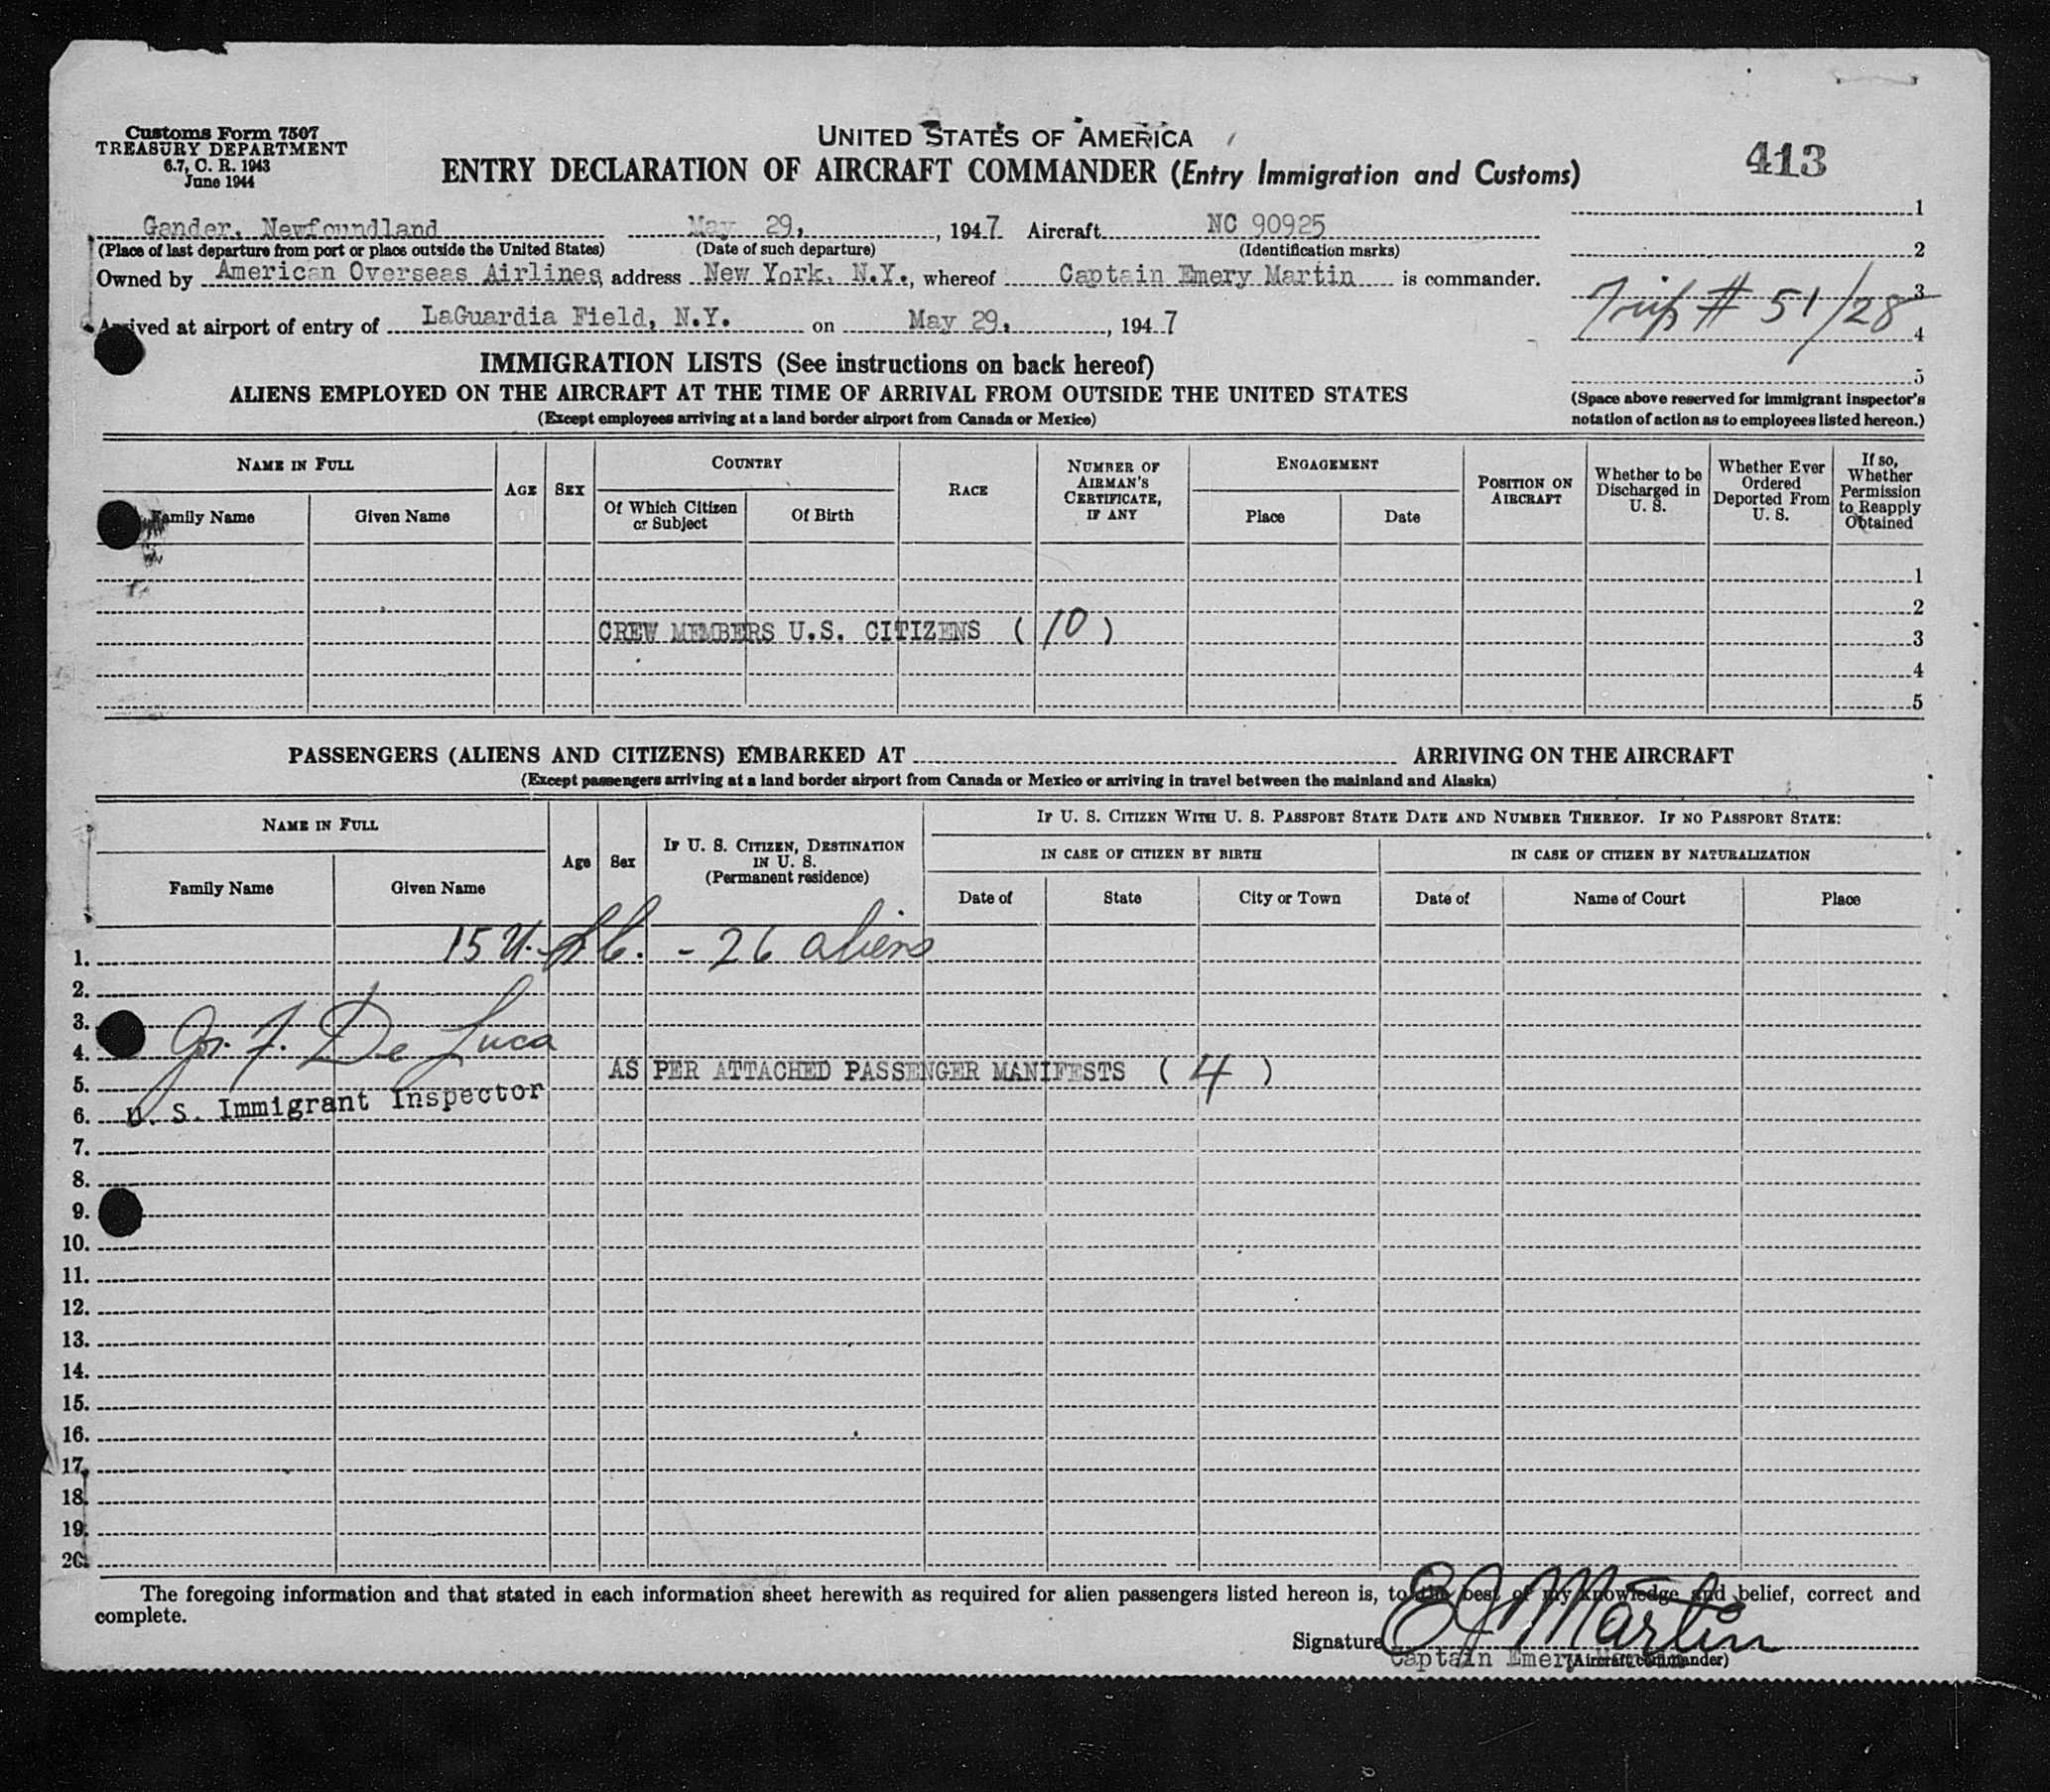 Customs Form 7507
TREASURY DEPARTMENT
6.7, C. R. 1943
June 1944
UNITED STATES OF AMERICA
ENTRY DECLARATION OF AIRCRAFT COMMANDER (Entry Immigration and Customs)
413
Gander, Newfoundland May 29, , 1947 Aircraft NC 90925
(Place of last departure from port or place outside the United States) (Date of such departure) (Identification marks)
Owned by American Overseas Airlines, address New York, N.Y., whereof Captain Emery Martin is commander.
Arrived at airport of entry of LaGuardia Field, N.Y. on May 29, , 1947
1
2
3
Trip # 51/28
4
5
(Space above reserved for immigrant inspector's
notation of action as to employees listed hereon.)
IMMIGRATION LISTS (See instructions on back hereof)
ALIENS EMPLOYED ON THE AIRCRAFT AT THE TIME OF ARRIVAL FROM OUTSIDE THE UNITED STATES
(Except employees arriving at a land border airport from Canada or Mexico)
NAME IN FULL
Family Name
Given Name
AGE
SEX
COUNTRY
Of Which Citizen
or Subject
Of Birth
RACE
NUMBER OF
AIRMAN'S
CERTIFICATE,
IF ANY
ENGAGEMENT
Place
Date
POSITION ON
AIRCRAFT
Whether to be
Discharged in
U. S.
Whether Ever
Ordered
Deported From
U. S.
If so,
Whether
Permission
to Reapply
Obtained
1
2
CREW MEMBERS U.S. CITIZENS ( 10 )
3
4
5
PASSENGERS (ALIENS AND CITIZENS) EMBARKED AT ARRIVING ON THE AIRCRAFT
(Except passengers arriving at a land border airport from Canada or Mexico or arriving in travel between the mainland and Alaska)
NAME IN FULL
Family Name
Given Name
Age
Sex
IF U. S. CITIZEN, DESTINATION
IN U. S.
(Permanent residence)
IF U. S. CITIZEN WITH U. S. PASSPORT STATE DATE AND NUMBER THEREOF. IF NO PASSPORT STATE:
IN CASE OF CITIZEN BY BIRTH
IN CASE OF CITIZEN BY NATURALIZATION
Date of
State
City or Town
Date of
Name of Court
Place
1. 15 U.S.C. - 26 aliens
2.
3.
4. Jos. F. De Luca
5. AS PER ATTACHED PASSENGER MANIFESTS ( 4 )
6. U. S. Immigrant Inspector
7.
8.
9.
10.
11.
12.
13.
14.
15.
16.
17.
18.
19.
20.
The foregoing information and that stated in each information sheet herewith as required for alien passengers listed hereon is, to the best of my knowledge and belief, correct and
complete.
Signature E J Martin
Captain Emery Martin
(Aircraft commander)